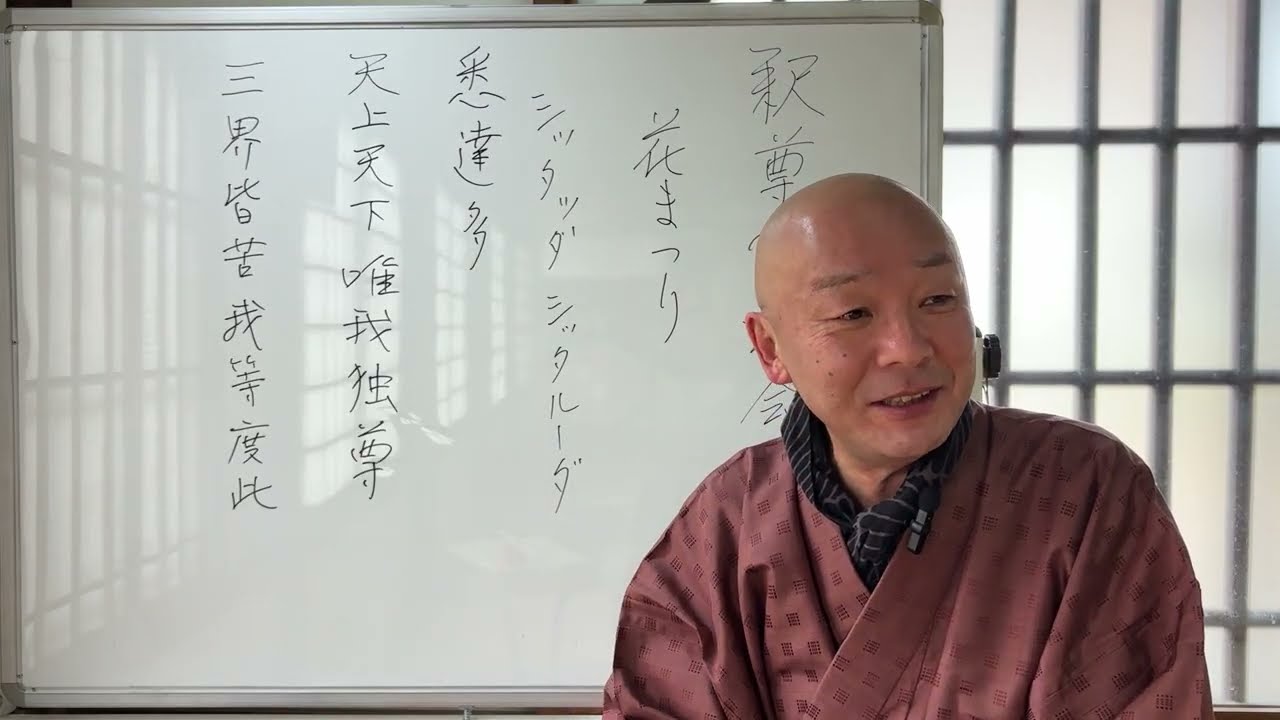 釈尊
会
花まつり
シッタッダ シッタルーダ
悉達多
天上天下 唯我独尊
三界皆苦 我等度此